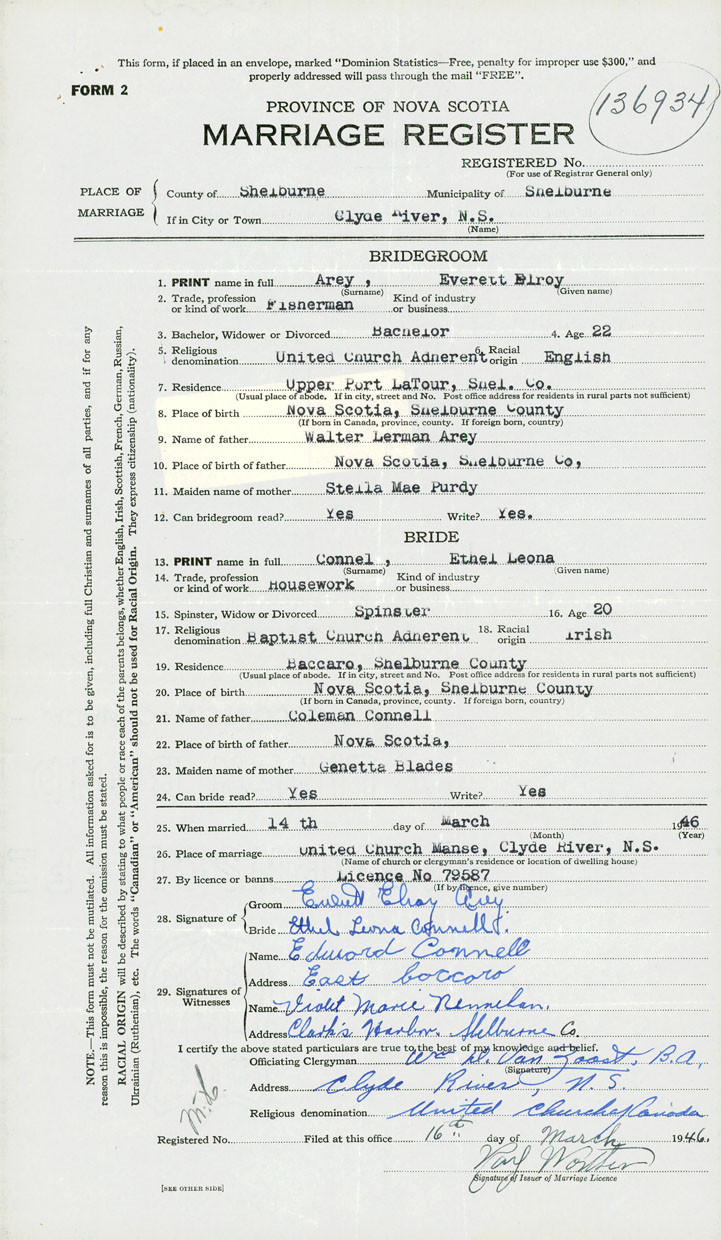 This form, if placed in an envelope, marked "Dominion Statistics—Free, penalty for improper use $300," and
properly addressed will pass through the mail "FREE".
FORM 2
136934
PROVINCE OF NOVA SCOTIA
MARRIAGE REGISTER
REGISTERED No.
(For use of Registrar General only)
PLACE OF MARRIAGE
County of Shelburne Municipality of Shelburne
If in City or Town Clyde River, N.S.
(Name)
BRIDEGROOM
1. PRINT name in full Arey , Everett Elroy
(Surname) (Given name)
2. Trade, profession or kind of work Fisherman Kind of industry or business
3. Bachelor, Widower or Divorced Bachelor 4. Age 22
5. Religious denomination United Church Adherent 6. Racial origin English
7. Residence Upper Port LaTour, Shel. Co.
(Usual place of abode. If in city, street and No. Post office address for residents in rural parts not sufficient)
8. Place of birth Nova Scotia, Shelburne County
(If born in Canada, province, county. If foreign born, country)
9. Name of father Walter Lerman Arey
10. Place of birth of father Nova Scotia, Shelburne Co,
11. Maiden name of mother Stella Mae Purdy
12. Can bridegroom read? Yes Write? Yes.
BRIDE
13. PRINT name in full Connel , Ethel Leona
(Surname) (Given name)
14. Trade, profession or kind of work Housework Kind of industry or business
15. Spinster, Widow or Divorced Spinster 16. Age 20
17. Religious denomination Baptist Church Adherent 18. Racial origin Irish
19. Residence Baccaro, Shelburne County
(Usual place of abode. If in city, street and No. Post office address for residents in rural parts not sufficient)
20. Place of birth Nova Scotia, Shelburne County
(If born in Canada, province, county. If foreign born, country)
21. Name of father Coleman Connell
22. Place of birth of father Nova Scotia,
23. Maiden name of mother Genetta Blades
24. Can bride read? Yes Write? Yes
25. When married 14 th day of March 1946
(Month) (Year)
26. Place of marriage United Church Manse, Clyde River, N.S.
(Name of church or clergyman's residence or location of dwelling house)
27. By licence or banns Licence No 79587
(If by licence, give number)
28. Signature of
Groom Everett Elroy Arey
Bride Ethel Leona Connell.
29. Signatures of Witnesses
Name Edward Connell
Address East boccoro
Name Violet Marie Nennekan.
Address Clark's Harbor. Shelburne Co.
I certify the above stated particulars are true to the best of my knowledge and belief.
Officiating Clergyman Wm D. Van Zoost, B.A,
(Signature)
Address Clyde River, N.S.
Religious denomination United Church of Canada
Registered No. Filed at this office 16th day of March 1946.
Signature of Issuer of Marriage Licence
[SEE OTHER SIDE]
NOTE.—This form must not be mutilated. All information asked for is to be given, including full Christian and surnames of all parties, and if for any
reason this is impossible, the reason for the omission must be stated.
RACIAL ORIGIN will be described by stating to what people or race each of the parents belongs, whether English, Irish, Scottish, French, German, Russian,
Ukrainian (Ruthenian), etc. The words "Canadian" or "American" should not be used for Racial Origin. They express citizenship (nationality).